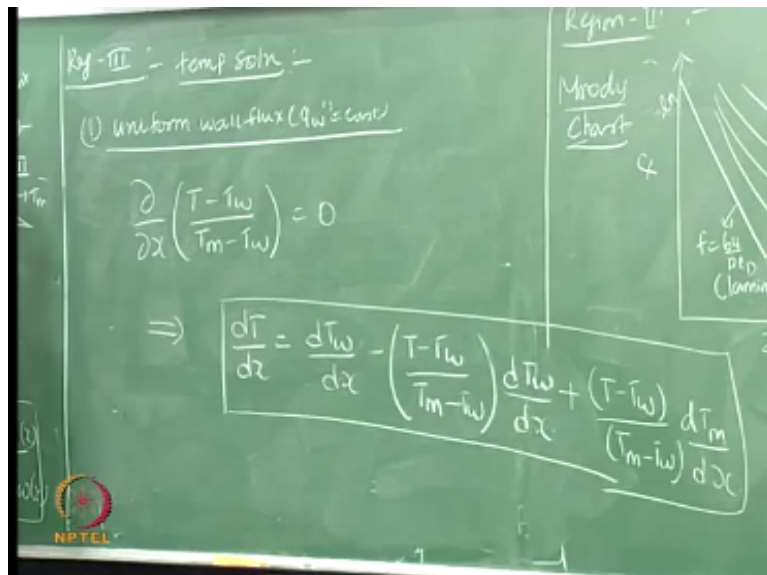 Reg-III :- temp soln :-
(1) uniform wall flux (q_w''=const)
∂/∂x ((T-Tw)/(Tm-Tw)) = 0
⇒ dT/dx = dTw/dx - ((T-Tw)/(Tm-Tw)) dTw/dx + (T-Tw)/(Tm-Tw) dTm/dx
Region-II :-
Moody
Chart
f=64/ReD
NPTEL